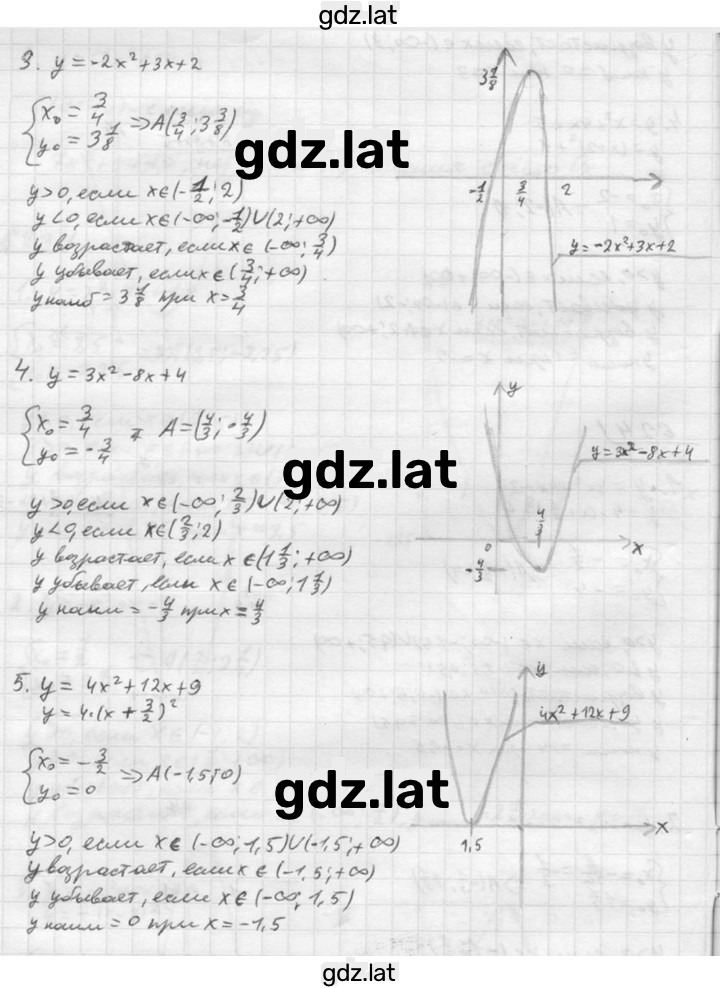 gdz.lat
3. y = -2x²+3x+2
{x₀ = 3/4
y₀ = 3 1/8 => A(3/4; 3 3/8)
y>0, если x∈(-1/2; 2)
y<0, если x∈(-∞; -1/2)∪(2; +∞)
y возрастает, если x∈(-∞; 3/4)
y убывает, если x∈(3/4; +∞)
y наиб = 3 1/8 при x = 3/4
3 1/8
-1/2 3/4 2
y = -2x²+3x+2
gdz.lat
4. y = 3x²-8x+4
{x₀ = 3/4
y₀ = -3/4 A = (4/3; -4/3)
y>0, если x∈(-∞; 2/3)∪(2; +∞)
y<0, если x∈(2/3; 2)
y возрастает, если x∈(1 1/3; +∞)
y убывает, если x∈(-∞; 1 1/3)
y наим = -4/3 при x = 4/3
y
y = 3x²-8x+4
4/3
0
x
-4/3
gdz.lat
5. y = 4x²+12x+9
y = 4·(x+3/2)²
{x₀ = -3/2
y₀ = 0 => A(-1,5; 0)
y>0, если x∈(-∞; 1,5)∪(-1,5; +∞)
y возрастает, если x∈(-1,5; +∞)
y убывает, если x∈(-∞; 1,5)
y наим = 0 при x = -1,5
y
4x²+12x+9
x
1,5
gdz.lat
gdz.lat